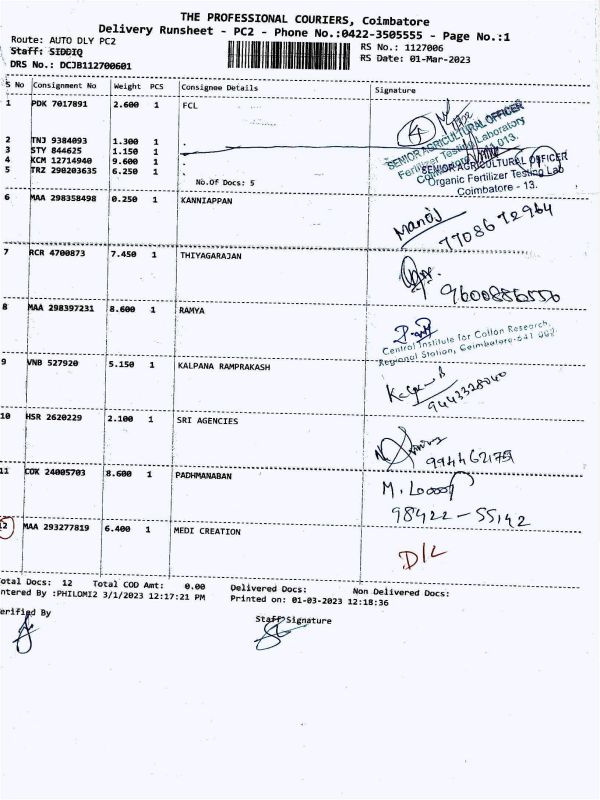 THE PROFESSIONAL COURIERS, Coimbatore
Delivery Runsheet - PC2 - Phone No.:0422-3505555 - Page No.:1
Route: AUTO DLY PC2
RS No.: 1127006
Staff: SIDDIQ
RS Date: 01-Mar-2023
DRS No.: DCJB112700601
S No Consignment No Weight PCS Consignee Details Signature
1 PDK 7017891 2.600 1 FCL
4
SENIOR AGRICULTURAL OFFICER
Fertilizer Testing Laboratory
2 TNJ 9384093 1.300 1 .
3 STY 844625 1.150 1 .
4 KCM 12714940 9.600 1 .
5 TRZ 290203635 6.250 1 .
No.Of Docs: 5
SENIOR AGRICULTURAL OFFICER
Organic Fertilizer Testing Lab
Coimbatore - 13.
6 MAA 298358498 0.250 1 KANNIAPPAN
Manoj
7708672964
7 RCR 4700873 7.450 1 THIYAGARAJAN
9600886556
8 MAA 298397231 8.600 1 RAMYA
Central Institute for Cotton Research,
Regional Station, Coimbatore-641 003.
9 VNB 527920 5.150 1 KALPANA RAMPRAKASH
9443328040
10 HSR 2620229 2.100 1 SRI AGENCIES
11 COK 24005703 8.600 1 PADHMANABAN
98422-55142
12 MAA 293277819 6.400 1 MEDI CREATION
D/L
otal Docs: 12 Total COD Amt: 0.00 Delivered Docs: Non Delivered Docs:
ntered By :PHILOMI2 3/1/2023 12:17:21 PM Printed on: 01-03-2023 12:18:36
erified By
Staff Signature